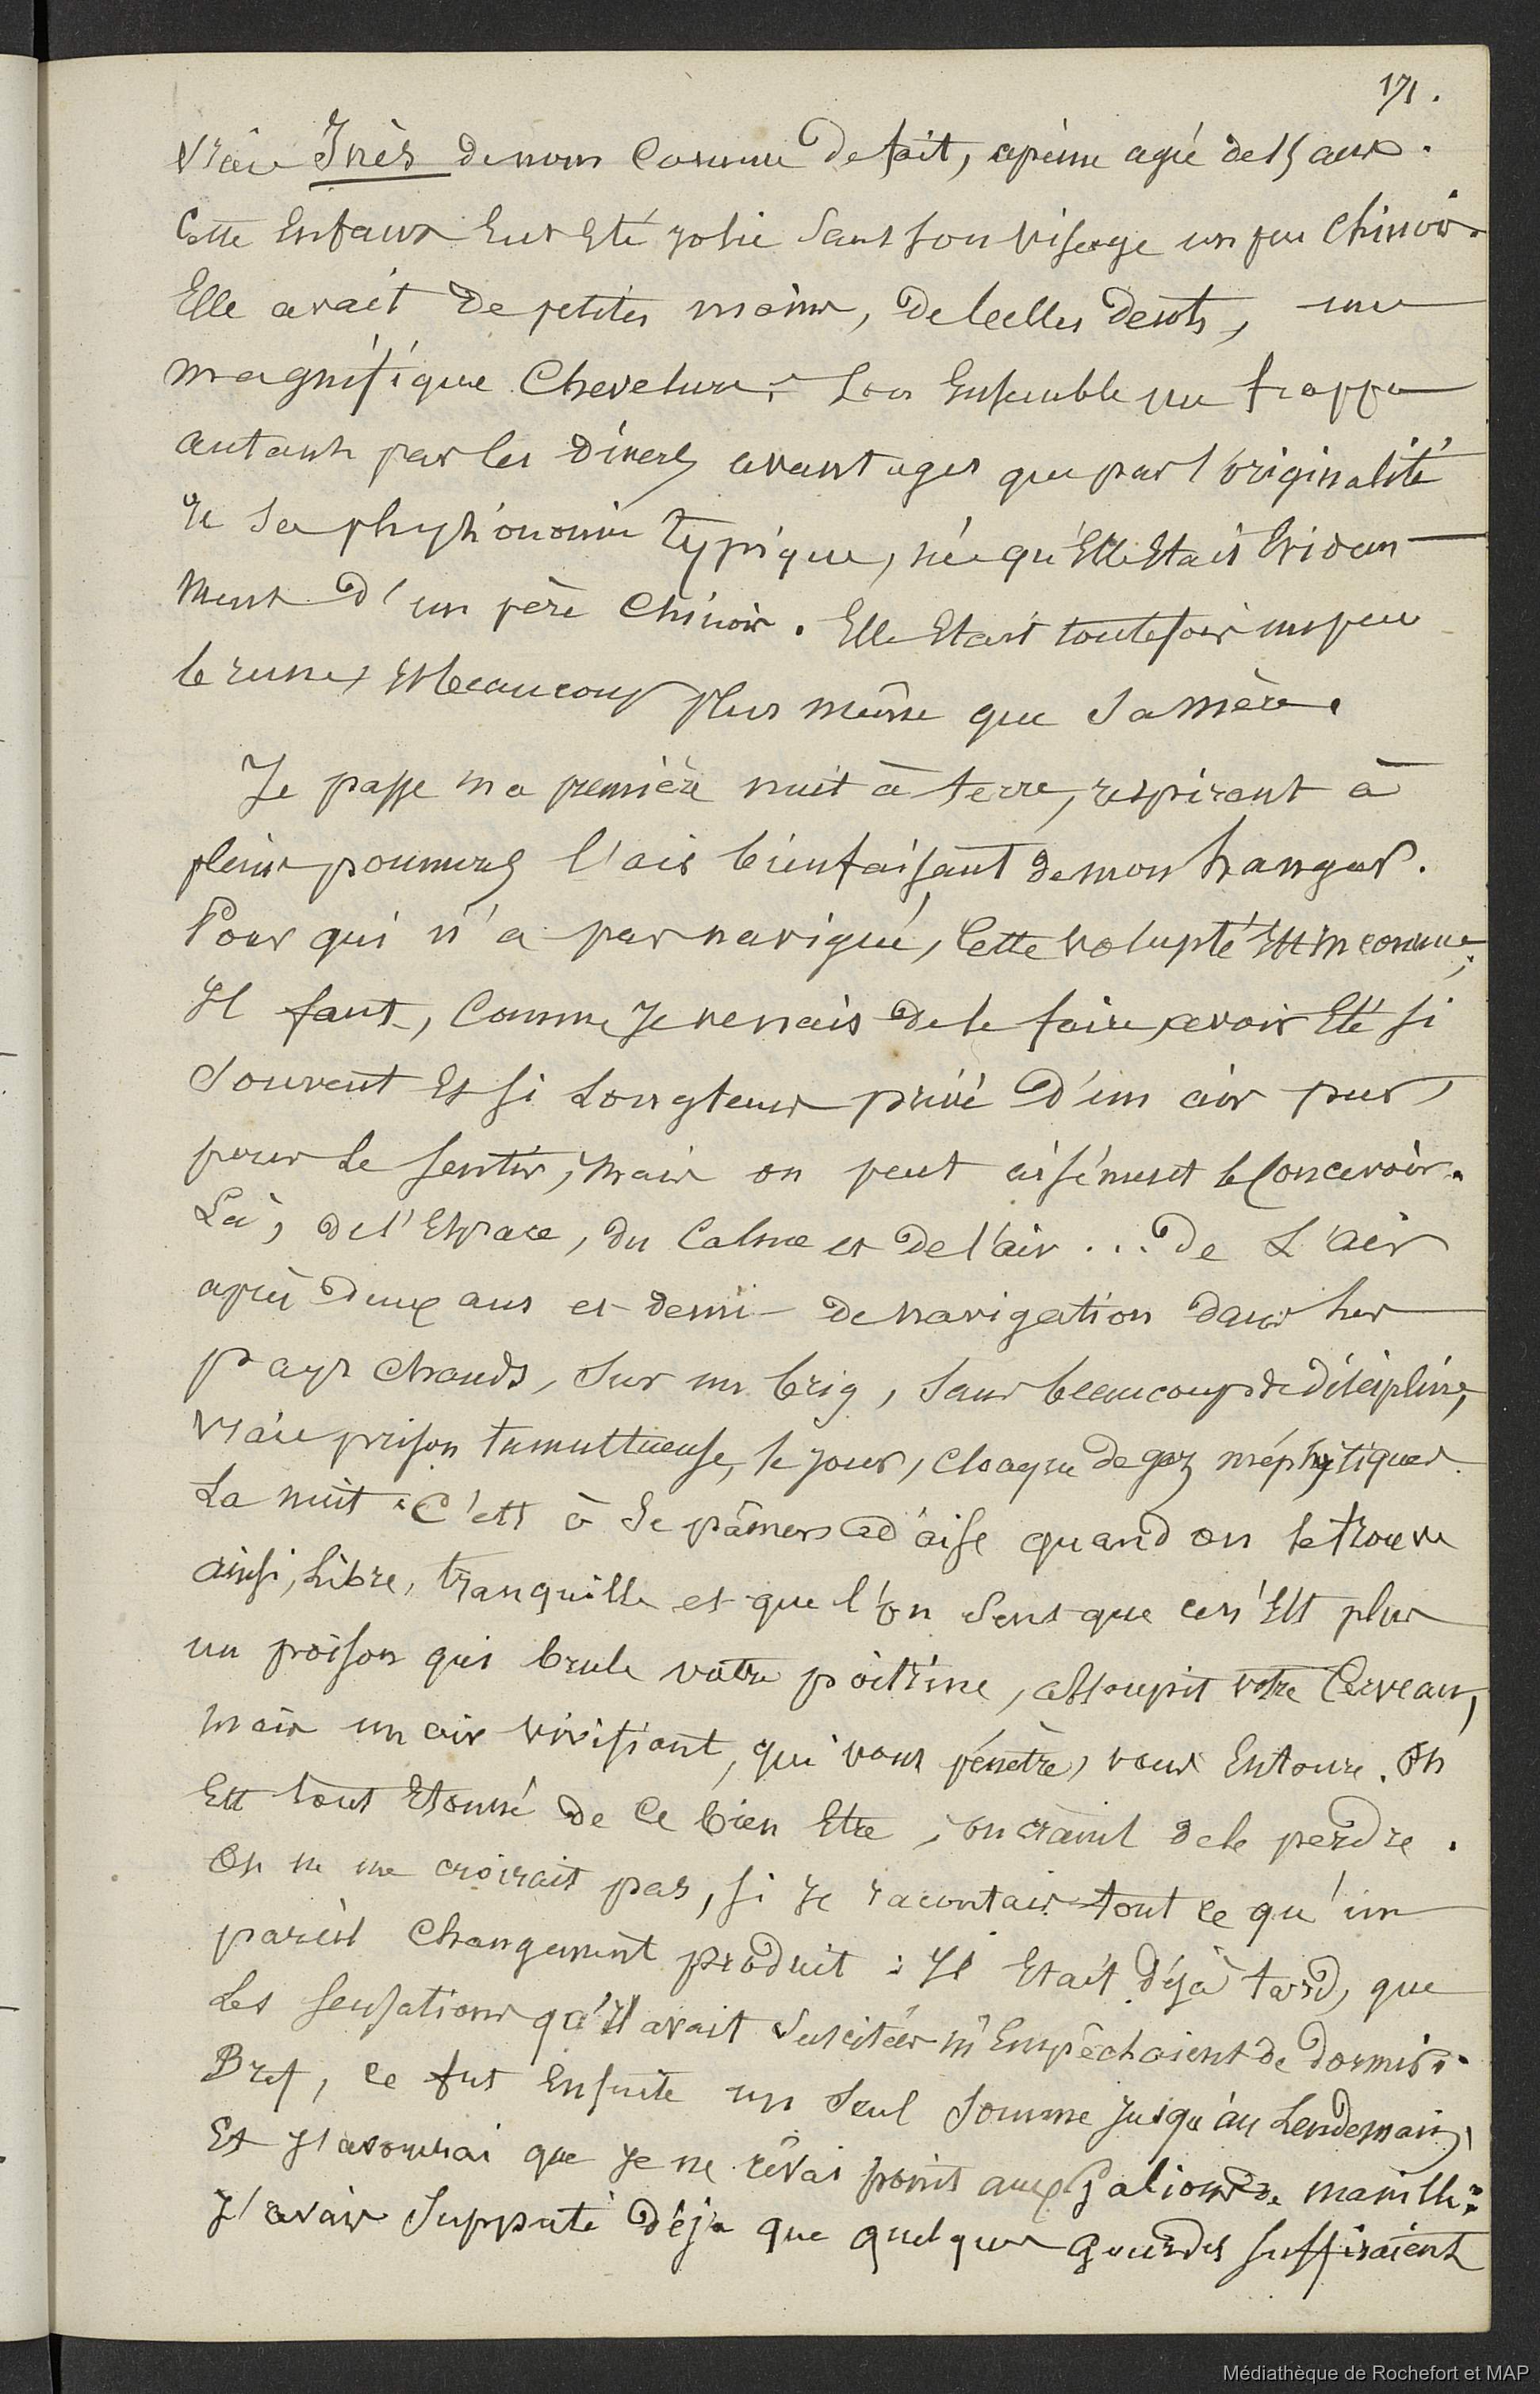 171.
vraie Inès de nom comme de fait, apeine agée de 15 ans.
Cette Enfant Eut Eté jolie sans son visage un peu chinois.
Elle avait de petites mains, de belles dents, une
magnifique chevelure. Son Ensemble me frappa
autant par les divers avantages que par l'originalité
de sa physionomie typique, née qu'Elle Etait Evidem-
ment d'un père chinois. Elle Etait toutefois un peu
brune, Et beaucoup plus même que sa mère.
Je passe ma première nuit à terre, respirant à
pleins poumons l'air bienfaisant de mon hangar.
Pour qui n'a pas navigué, Cette volupté Est inconnue;
Il faut, Comme je venais de le faire, avoir Eté si
souvent Et si longtems privé d'un air pur,
pour le sentir, mais on peut aisément le Concevoir.
Là, de l'Espace, du Calme et de l'air ... de L'air
après deux ans et demi de navigation dans les
pays chauds, sur un brig, sans beaucoup de discipline,
vraie prison tumultueuse, le jour, cloaque de gaz méphytiques
La nuit. C'est à se pâmer d'aise quand on se trouve
ainsi, libre, tranquille et que l'on sent que ce n'Est plus
un poison qui brule votre poitrine, assoupit votre Cerveau,
mais un air vivifiant, qui vous pénètre, vous Entoure. On
Est tout Etonné de ce bien Etre, on craint de le perdre.
On ne me croirait pas, si je racontais tout ce qu'un
pareil changement produit : Il Etait déjà tard, que
Les sensations qu'Il avait suscitées m'Empêchaient de dormir.
Bref, ce fut Ensuite un seul somme jusqu'au Lendemain,
Et j'avourai que je ne rêvai point aux Galions de manille:
J'avais supputé déja que quelques gourdes suffiraient
Médiathèque de Rochefort et MAP